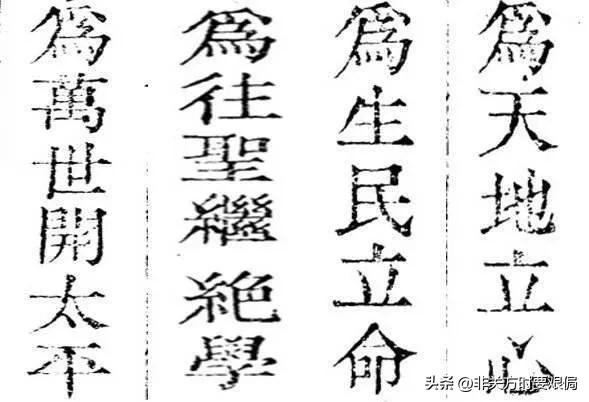 爲天地立心
爲生民立命
爲往聖繼絶學
爲萬世開太平
头条 @非关方时要艰侷